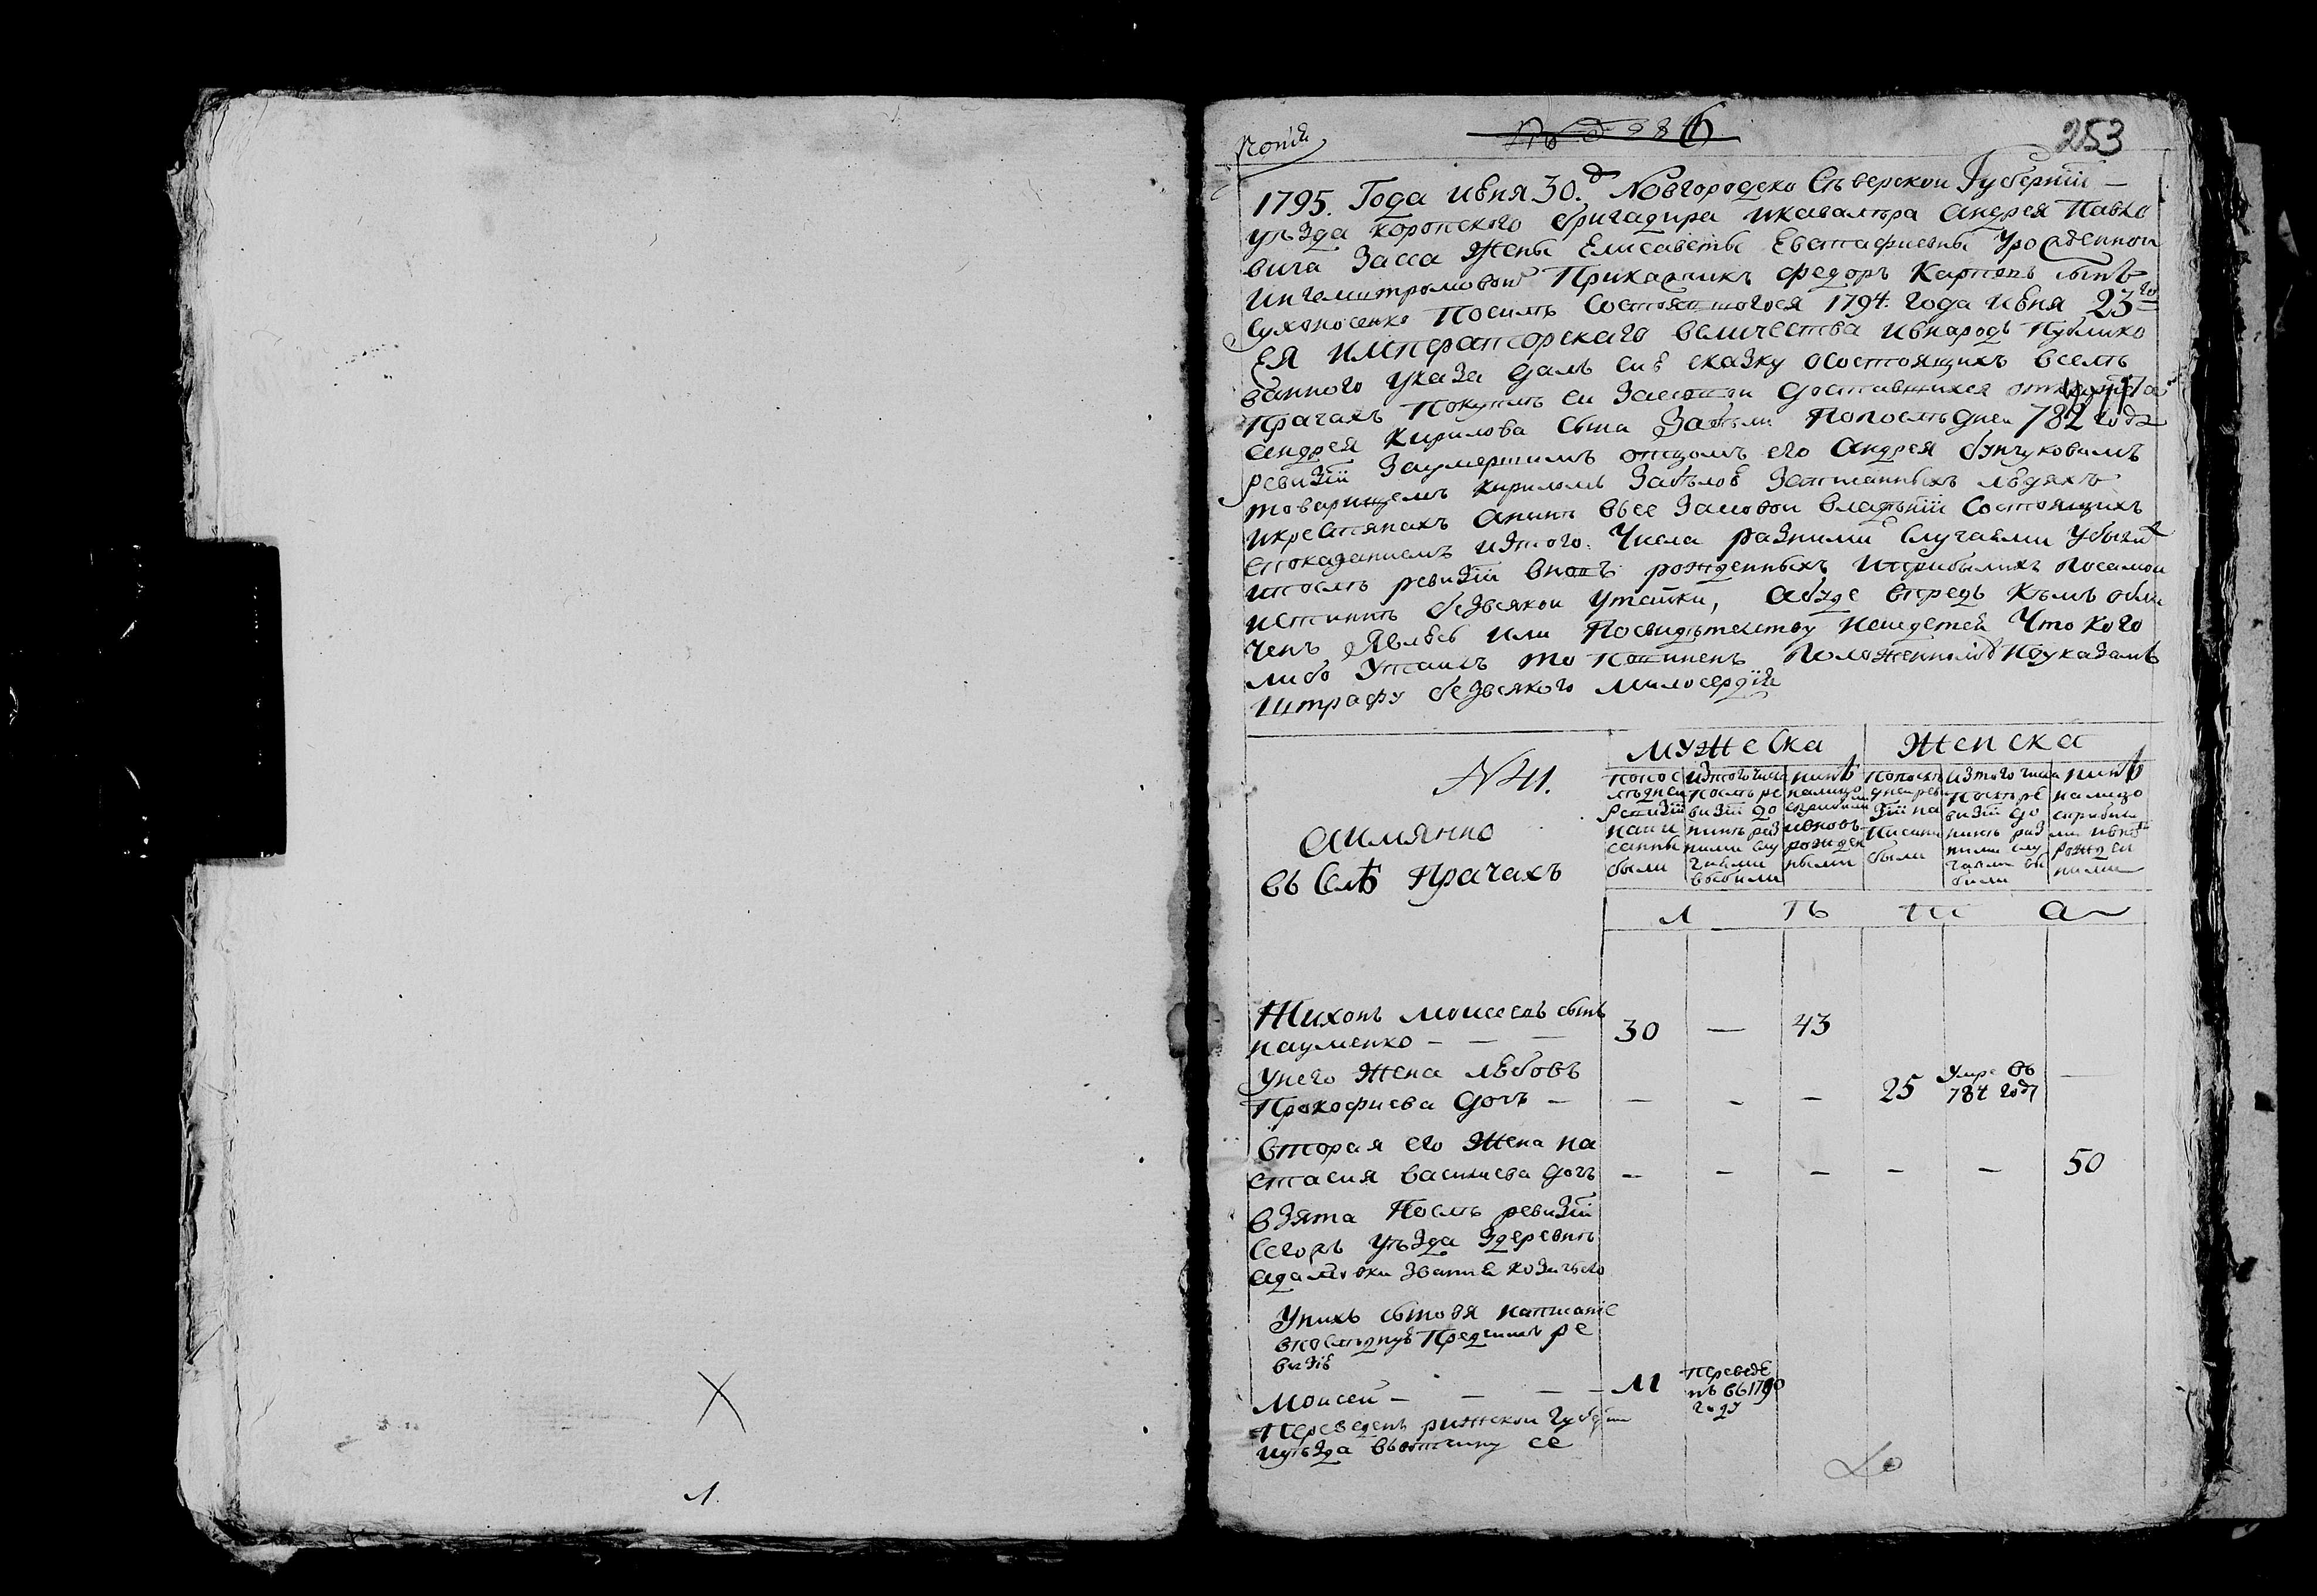 Копія
253
1795. Года июня 30. д Новгородско Северской Губерніи —
уезда коропского бригадира икавалера андрея Павло
вича Засса Жены Елисаветы Евстафиевны Урожденной
Прикащикъ федоръ Карповъ сынъ
Сухоносенко Посилѣ Состоявшогося 1794. года июня 23го
ЕЯ ИМПЕРАТОРСКАГО величества ивнародъ публико
ванного указа далъ сию сказку осостоящихъ вселѣ
Прачахъ Покуплѣ ей Зассовой доставшихся от
андрея Кирилова сына Забѣлы Попоследней 782 года
ревизіи Заумершимъ отцомъ его андрея бунчуковымъ
товарищемъ кириломъ Забѣлою Записанныхъ людяхъ
икрестянахъ анинѣ вее Зассовой владѣніи Состоящихъ
споказаниемъ изтого Числа разними Случаями Убылихъ
ипослѣ ревизіи вновь рожденныхъ иприбылихъ посамой
истиннѣ безвсякой Утайки, абуде впредь кѣмъ обли
ченъ явлюсь или Посвидѣтелству Что кого
либо Утаилъ то Повиненъ Положенному поуказамъ
штрафу безвсякого милосердія
N 41.
аимянно
въ Селѣ Прачахъ
мужеска Женска
попос
лѣдней
ревизіи
напи
санны
были
изтого числа
послѣ ре
визіи до
нинѣ раз
ними слу
чаями
выбили
нинѣ
налицо
сприбили
ивновь
рожден
ными
попослѣ
дней реви
зіи на
писаны
были
изтого числа
послѣ ре
визіи до
нинѣ раз
ними слу
чаями вы
били
нинѣ
налицо
сприбили
ми ивновь
рожден
ными
Л Ѣ Т А
Тихонъ моисеевъ сынъ
науменко — — — 30 — 43
Унего Жена любовъ
Прокофиева дочь — — — — 25 Умре въ 784 году —
вторая его Жена на
стасия василиева дочь — — — — — 50
взята Послѣ ревизіи
Сегожъ уѣзда здеревнѣ
адамовки званія козачего
Унихъ сыновя написаніе
впоследнюю Предсимъ ре
визію
моисей — — — 11 переведе
нъ въ 1790
году
Переведенъ рижской губерніи
иуѣзда ввотчину ее
1.